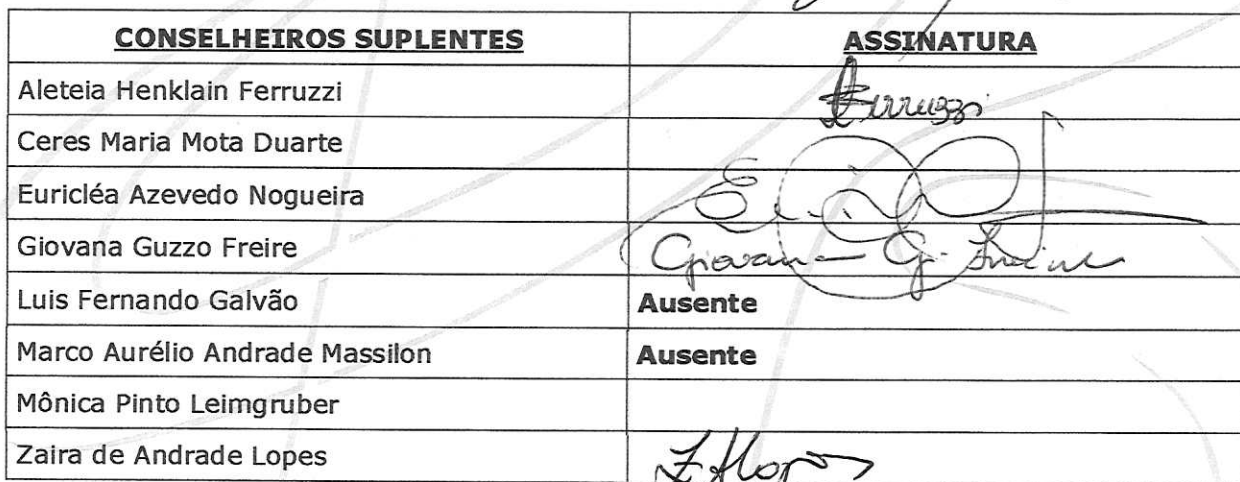 CONSELHEIROS SUPLENTES ASSINATURA
Aleteia Henklain Ferruzzi Ferruzzi
Ceres Maria Mota Duarte
Euricléa Azevedo Nogueira
Giovana Guzzo Freire Giovana G. Freire
Luis Fernando Galvão Ausente
Marco Aurélio Andrade Massilon Ausente
Mônica Pinto Leimgruber
Zaira de Andrade Lopes ZALopes